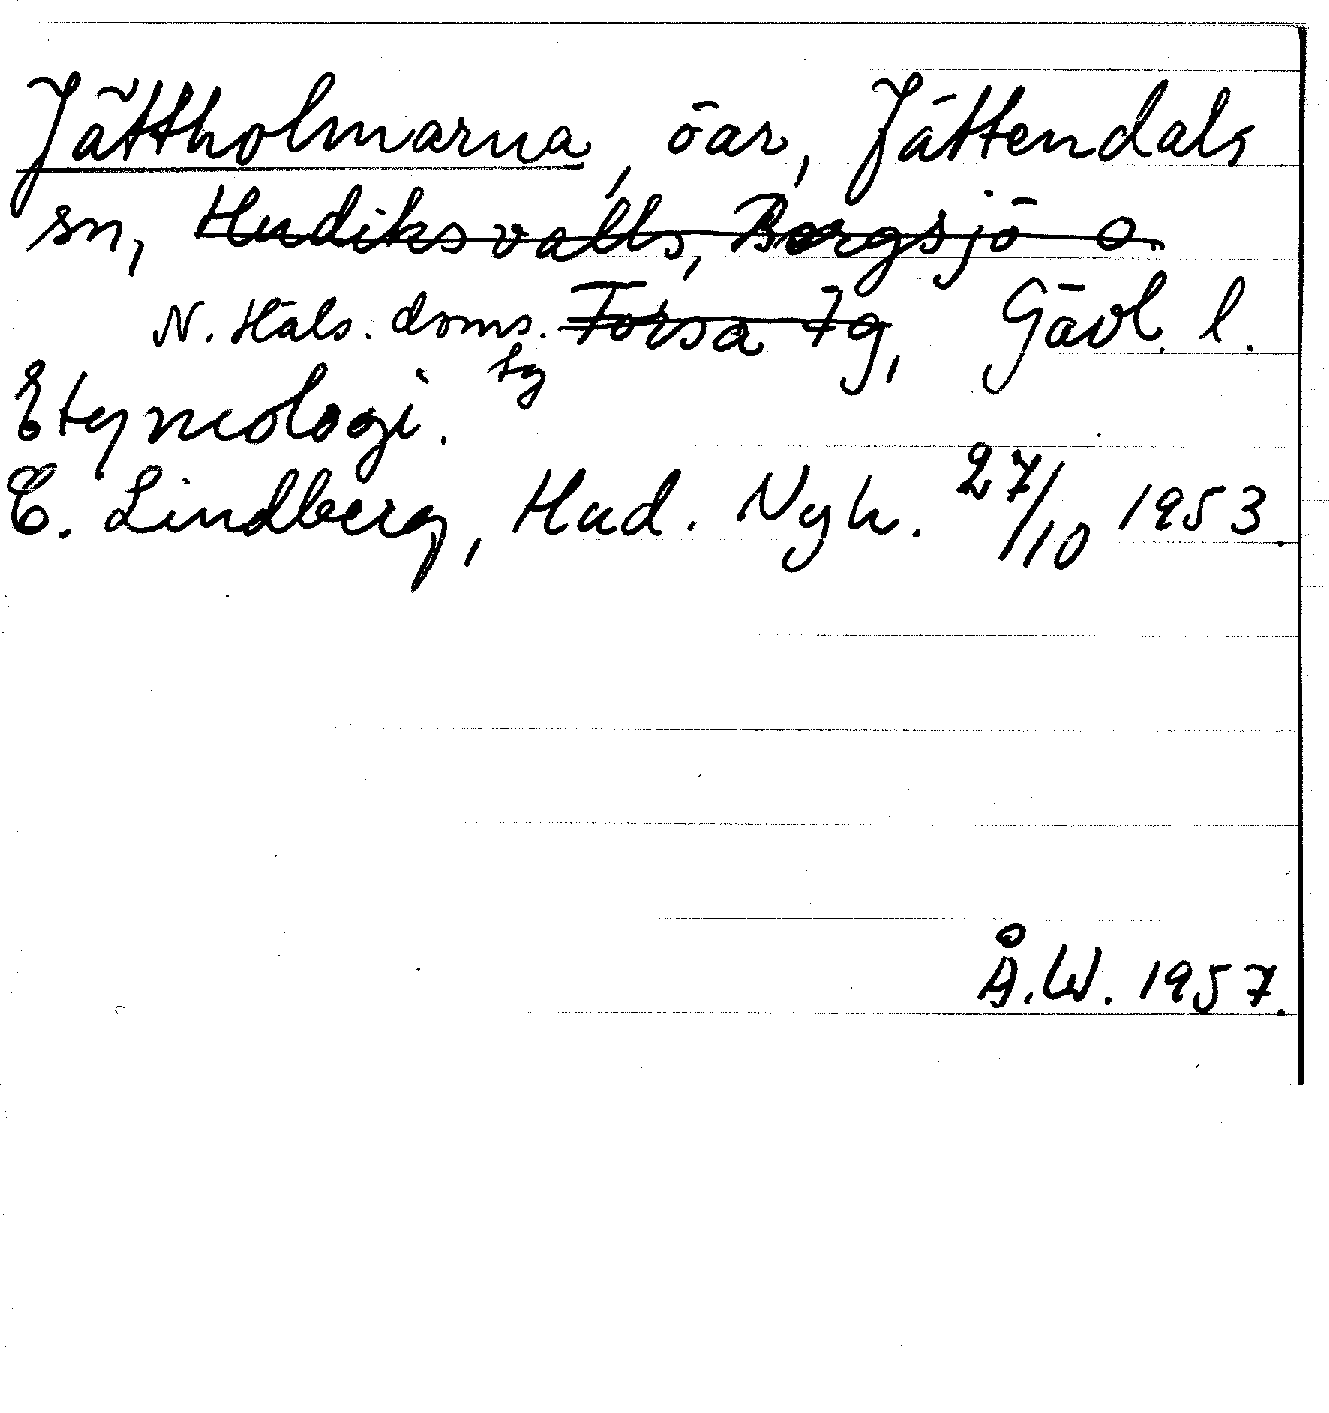 Jättholmarna, öar, Jättendals
sn, Hudiksvalls, Bergsjö o.
N. Häls. doms. Forsa tg, Gävl. l.
tg
Etymologi.
C. Lindberg, Hud. Nyh. 27/10 1953.
Å.W. 1957.